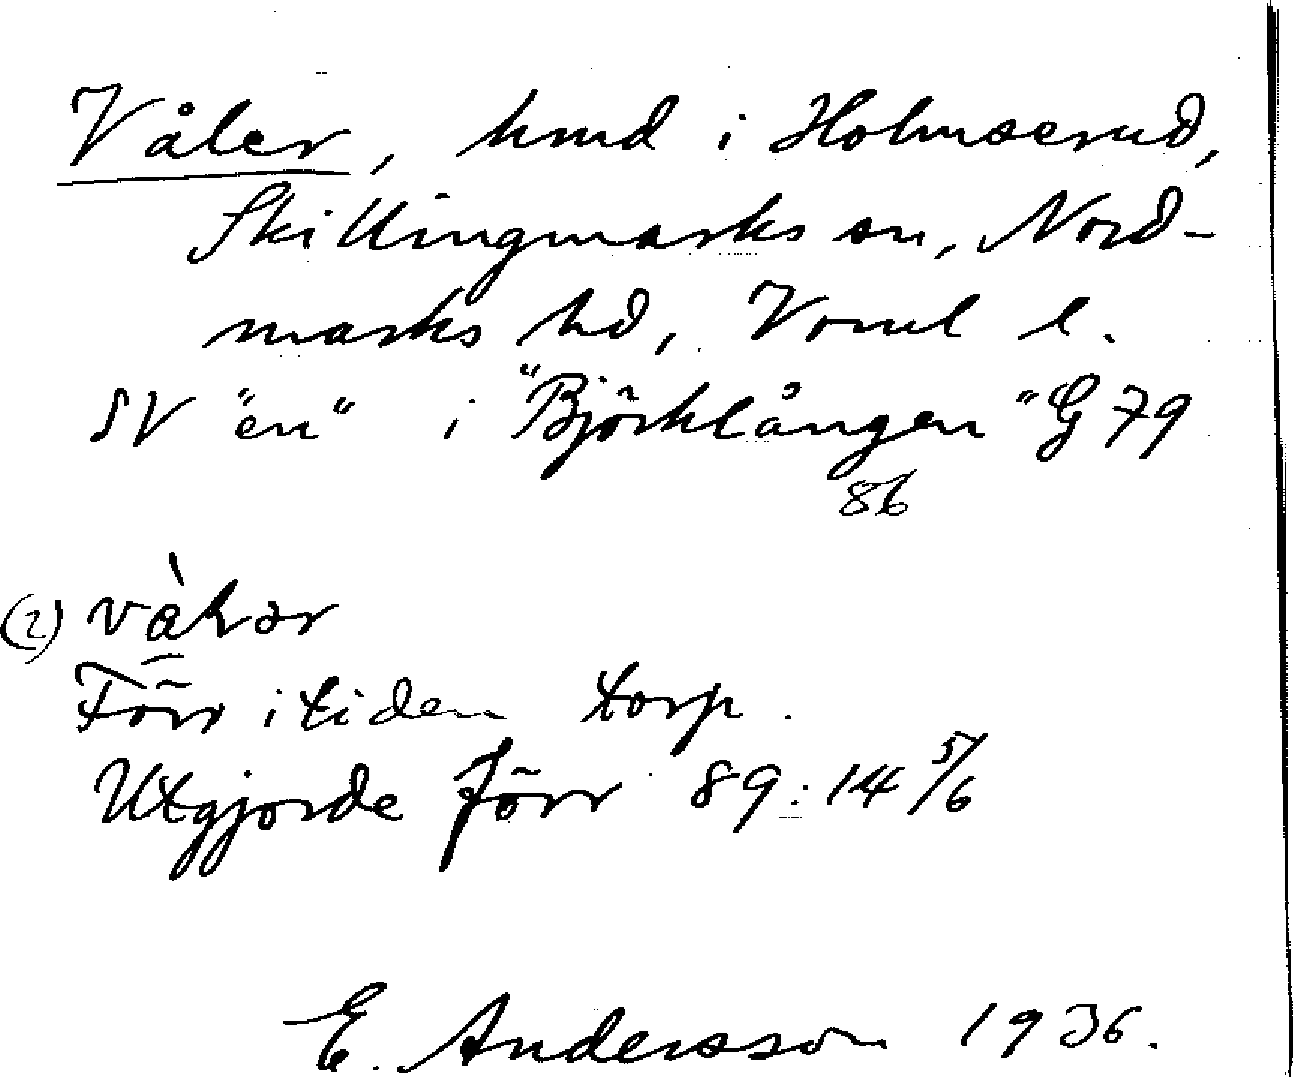 Våler, hmd i Holmserud,
Skillingmarks sn, Nord-
marks hd, Vrml l.
SV "en" i "Björklången" G 79
86
(2) våler
Förr i tiden torp.
Utgjorde förr 89:14 5/6
E. Andersson 1936.